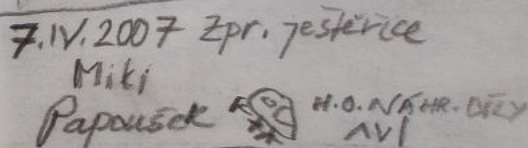 7.IV.2007 Zpr. ještěrice
Miki
Papoušek H.O. NÁHR. DÍLY
AVI